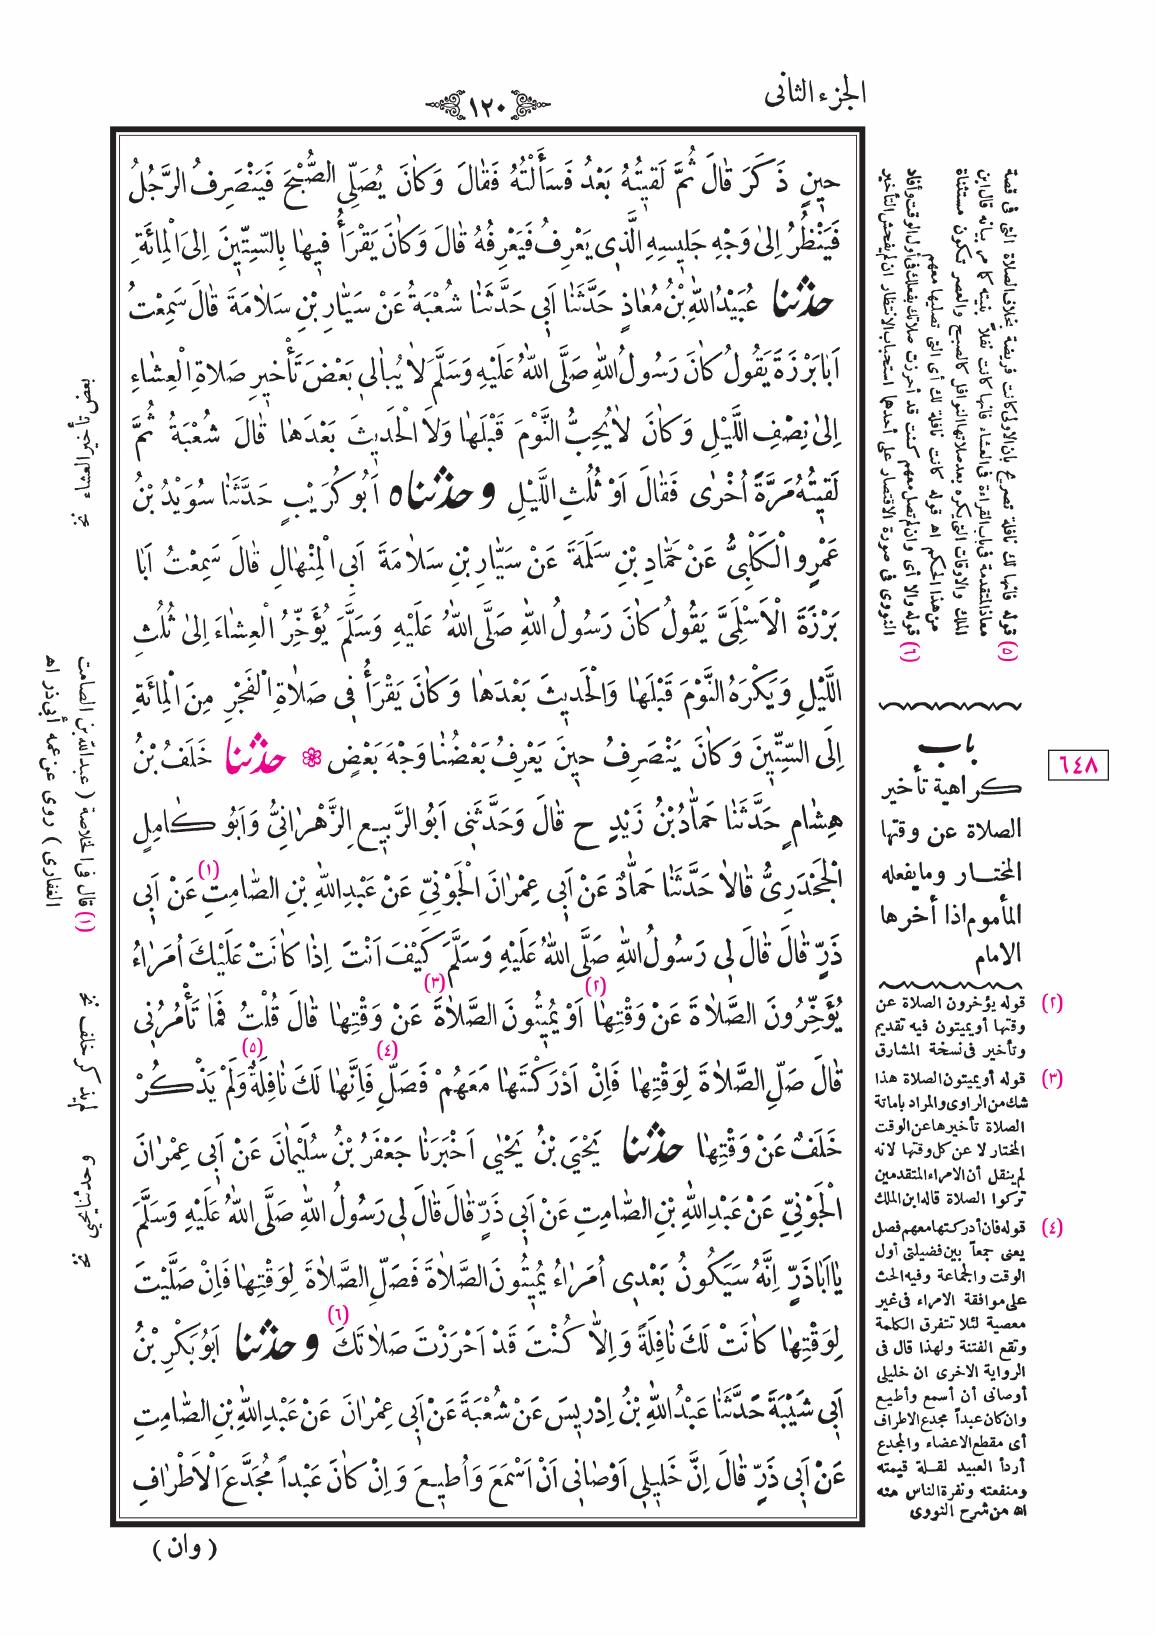 الجزء الثانى
١٢٠
حينٍ ذَكَرَ قَالَ ثُمَّ لَقيتُهُ بَعْدُ فَسَأَلْتُهُ فَقَالَ وَكَانَ يُصَلِّى الصُّبْحَ فَيَنْصَرِفُ الرَّجُلُ
فَيَنْظُرُ اِلىٰ وَجْهِ جَليسِهِ الَّذى يَعْرِفُ فَيَعْرِفُهُ قَالَ وَكَانَ يَقْرَأُ فيهَا بِالسِّتّينَ اِلَى الْمِائَةِ
حدثنا عُبَيْدُ اللهِ بْنُ مُعَاذٍ حَدَّثَنَا اَبى حَدَّثَنَا شُعْبَةُ عَنْ سَيَّارِ بْنِ سَلَامَةَ قَالَ سَمِعْتُ
اَبَا بَرْزَةَ يَقُولُ كَانَ رَسُولُ اللهِ صَلَّى اللهُ عَلَيْهِ وَسَلَّمَ لَا يُبَالى بَعْضَ تَأْخيرِ صَلَاةِ الْعِشَاءِ
اِلىٰ نِصْفِ اللَّيْلِ وَكَانَ لَا يُحِبُّ النَّوْمَ قَبْلَهَا وَلَا الْحَديثَ بَعْدَهَا قَالَ شُعْبَةُ ثُمَّ
لَقيتُهُ مَرَّةً اُخْرٰى فَقَالَ اَوْ ثُلُثِ اللَّيْلِ وحدثناه اَبُو كُرَيْبٍ حَدَّثَنَا سُوَيْدُ بْنُ
عَمْرٍو الْكَلْبِىُّ عَنْ حَمَّادِ بْنِ سَلَمَةَ عَنْ سَيَّارِ بْنِ سَلَامَةَ اَبى الْمِنْهَالِ قَالَ سَمِعْتُ اَبَا
بَرْزَةَ الْاَسْلَمِىَّ يَقُولُ كَانَ رَسُولُ اللهِ صَلَّى اللهُ عَلَيْهِ وَسَلَّمَ يُؤَخِّرُ الْعِشَاءَ اِلىٰ ثُلُثِ
اللَّيْلِ وَيَكْرَهُ النَّوْمَ قَبْلَهَا وَالْحَديثَ بَعْدَهَا وَكَانَ يَقْرَأُ فى صَلَاةِ الْفَجْرِ مِنَ الْمِائَةِ
اِلَى السِّتّينَ وَكَانَ يَنْصَرِفُ حينَ يَعْرِفُ بَعْضُنَا وَجْهَ بَعْضٍ ❁ حدثنا خَلَفُ بْنُ
هِشَامٍ حَدَّثَنَا حَمَّادُ بْنُ زَيْدٍ ح قَالَ وَحَدَّثَنى اَبُو الرَّبيعِ الزَّهْرَانِىُّ وَاَبُو كَامِلٍ
الْجَحْدَرِىُّ قَالَا حَدَّثَنَا حَمَّادٌ عَنْ اَبى عِمْرَانَ الْجَوْنِىِّ عَنْ عَبْدِ اللهِ بْنِ الصَّامِتِ (١) عَنْ اَبى
ذَرٍّ قَالَ قَالَ لى رَسُولُ اللهِ صَلَّى اللهُ عَلَيْهِ وَسَلَّمَ كَيْفَ اَنْتَ اِذَا كَانَتْ عَلَيْكَ اُمَرَاءُ
يُؤَخِّرُونَ الصَّلَاةَ عَنْ وَقْتِهَا (٢) اَوْ يُميتُونَ الصَّلَاةَ (٣) عَنْ وَقْتِهَا قَالَ قُلْتُ فَمَا تَأْمُرُنى
قَالَ صَلِّ الصَّلَاةَ لِوَقْتِهَا فَاِنْ اَدْرَكْتَهَا مَعَهُمْ فَصَلِّ (٤) فَاِنَّهَا لَكَ نَافِلَةٌ (٥) وَلَمْ يَذْكُرْ
خَلَفٌ عَنْ وَقْتِهَا حدثنا يَحْيَى بْنُ يَحْيٰى اَخْبَرَنَا جَعْفَرُ بْنُ سُلَيْمَانَ عَنْ اَبى عِمْرَانَ
الْجَوْنِىِّ عَنْ عَبْدِ اللهِ بْنِ الصَّامِتِ عَنْ اَبى ذَرٍّ قَالَ قَالَ لى رَسُولُ اللهِ صَلَّى اللهُ عَلَيْهِ وَسَلَّمَ
يَا اَبَا ذَرٍّ اِنَّهُ سَيَكُونُ بَعْدى اُمَرَاءُ يُميتُونَ الصَّلَاةَ فَصَلِّ الصَّلَاةَ لِوَقْتِهَا فَاِنْ صَلَّيْتَ
لِوَقْتِهَا كَانَتْ لَكَ نَافِلَةً وَاِلَّا كُنْتَ قَدْ اَحْرَزْتَ صَلَاتَكَ (٦) وحدثنا اَبُو بَكْرِ بْنُ
اَبى شَيْبَةَ حَدَّثَنَا عَبْدُ اللهِ بْنُ اِدْريسَ عَنْ شُعْبَةَ عَنْ اَبى عِمْرَانَ عَنْ عَبْدِ اللهِ بْنِ الصَّامِتِ
عَنْ اَبى ذَرٍّ قَالَ اِنَّ خَليلى اَوْصَانى اَنْ اَسْمَعَ وَاُطيعَ وَاِنْ كَانَ عَبْداً مُجَدَّعَ الْاَطْرَافِ
(وان)
(٥) قوله فانها لك نافلة تصرح بان الاولى كانت فريضة بخلاف الصلاة التى فى قصة
معاذ المتقدمة فى باب القراءة فى العشاء فانها كانت نفلاً بنيته كما مر بيانه قال ابن
الملك والاوقات التى يكره بعد صلاتها النوافل كالصبح والعصر تكون مستثناة
من هذا الحكم اه قوله كانت نافلة لك أى التى تصليها معهم
(٦) قوله والا أى وان لم تصل معهم كنت قد أحرزت صلاتك بفعلك فى أول الوقت وأفاد
النووى فى صورة الاقتصار على أحدها استحباب الانتظار ان لم يفحش التأخير
باب
كراهية تأخير
الصلاة عن وقتها
المختار وما يفعله
المأموم اذا أخرها
الامام
٦٤٨
(٢) قوله يؤخرون الصلاة عن
وقتها أو يميتون فيه تقديم
وتأخير فى نسخة المشارق
(٣) قوله أو يميتون الصلاة هذا
شك من الراوى والمراد باماتة
الصلاة تأخيرها عن الوقت
المختار لا عن كل وقتها لانه
لم ينقل أن الامراء المتقدمين
تركوا الصلاة قاله ابن الملك
(٤) قوله فان أدركتها معهم فصل
يعنى جمعاً بين فضيلتى أول
الوقت والجماعة وفيه الحث
على موافقة الامراء فى غير
معصية لئلا تتفرق الكلمة
وتقع الفتنة ولهذا قال فى
الرواية الاخرى ان خليلى
أوصانى أن أسمع وأطيع
وان كان عبداً مجدع الاطراف
أى مقطع الاعضاء والمجدع
أردأ العبيد لقلة قيمته
ومنفعته ونفرة الناس منه
اه من شرح النووى
بعض تأخير العشاء نخ
(١) قال فى الخلاصة (عبد الله بن الصامت
الغفارى) روى عن عمه أبى ذر اه
لم يذكر خلف نخ
يحيى حدثنا نخ